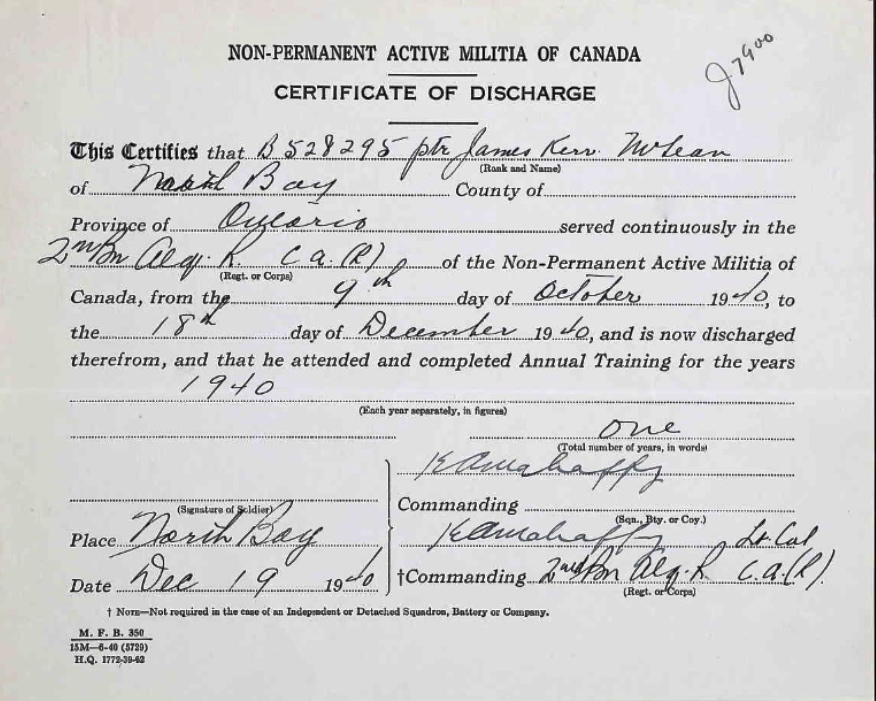 J 7900
NON-PERMANENT ACTIVE MILITIA OF CANADA
CERTIFICATE OF DISCHARGE
This Certifies that B 528295 pte James Kerr McLean
(Rank and Name)
of North Bay County of
Province of Ontario served continuously in the
2nd Bn Alg. R. C.A. (R) of the Non-Permanent Active Militia of
(Regt. or Corps)
Canada, from the 9th day of October 1940, to
the 18th day of December 1940, and is now discharged
therefrom, and that he attended and completed Annual Training for the years
1940
(Each year separately, in figures)
one
(Total number of years, in words)
KAMahaffy
(Signature of Soldier)
Commanding
(Sqn., Bty. or Coy.)
Place North Bay
KAMahaffy Lt Col
Date Dec 19 1940
†Commanding 2nd Bn Alg. R. C.A. (R).
(Regt. or Corps)
† NOTE—Not required in the case of an Independent or Detached Squadron, Battery or Company.
M. F. B. 350
15M—6-40 (5729)
H.Q. 1772-39-62